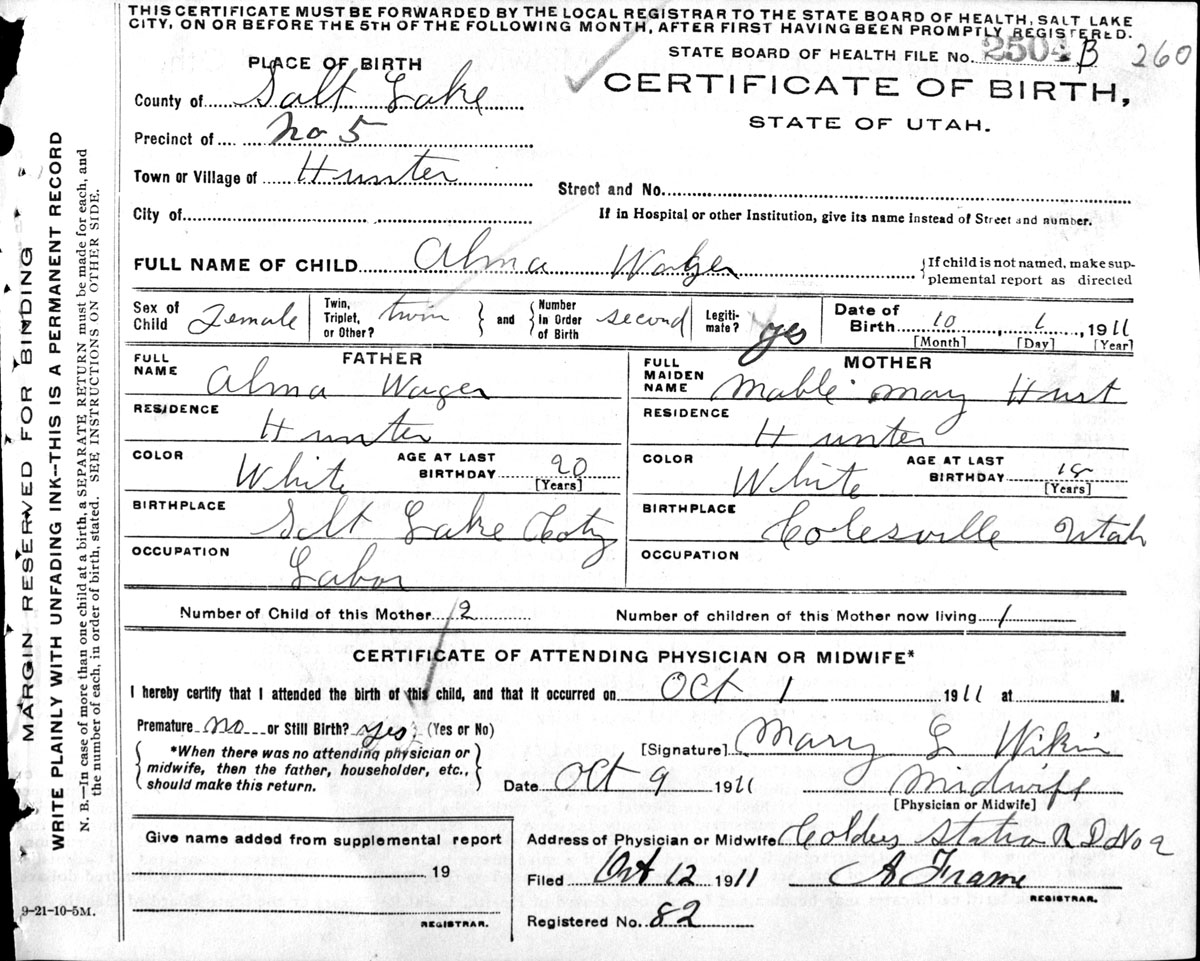 THIS CERTIFICATE MUST BE FORWARDED BY THE LOCAL REGISTRAR TO THE STATE BOARD OF HEALTH, SALT LAKE
CITY, ON OR BEFORE THE 5TH OF THE FOLLOWING MONTH, AFTER FIRST HAVING BEEN PROMPTLY REGISTERED.
STATE BOARD OF HEALTH FILE No. 2504 B 260
PLACE OF BIRTH
CERTIFICATE OF BIRTH,
STATE OF UTAH.
County of Salt Lake
Precinct of No 5
Town or Village of Hunter
Street and No.
City of
If in Hospital or other Institution, give its name instead of Street and number.
FULL NAME OF CHILD Alma Wager
{If child is not named, make sup-
plemental report as directed
Sex of Child Female
Twin, Triplet, or Other? twin
and
Number in Order of Birth second
Legiti-mate? yes
Date of Birth 10 1, 1911
[Month] [Day] [Year]
FATHER
FULL NAME Alma Wager
RESIDENCE Hunter
COLOR White AGE AT LAST BIRTHDAY 20 [Years]
BIRTHPLACE Salt Lake
OCCUPATION Labor
MOTHER
FULL MAIDEN NAME Mable May Hust
RESIDENCE Hunter
COLOR White AGE AT LAST BIRTHDAY 18 [Years]
BIRTHPLACE Colesville Utah
OCCUPATION
Number of Child of this Mother 2 Number of children of this Mother now living 1
CERTIFICATE OF ATTENDING PHYSICIAN OR MIDWIFE*
I hereby certify that I attended the birth of this child, and that it occurred on Oct 1 1911 at M.
Premature no or Still Birth? yes (Yes or No)
*When there was no attending physician or
midwife, then the father, householder, etc.,
should make this return.
[Signature] Mary L
Date Oct 9 1911 Midwife
[Physician or Midwife]
Give name added from supplemental report
19
REGISTRAR.
Address of Physician or Midwife Station R D No 2
Filed Oct 12 1911 A Frame
REGISTRAR.
Registered No. 82
9-21-10-5M.
MARGIN RESERVED FOR BINDING
WRITE PLAINLY WITH UNFADING INK—THIS IS A PERMANENT RECORD
N. B.—In case of more than one child at a birth, a SEPARATE RETURN must be made for each, and
the number of each, in order of birth, stated. SEE INSTRUCTIONS ON OTHER SIDE.